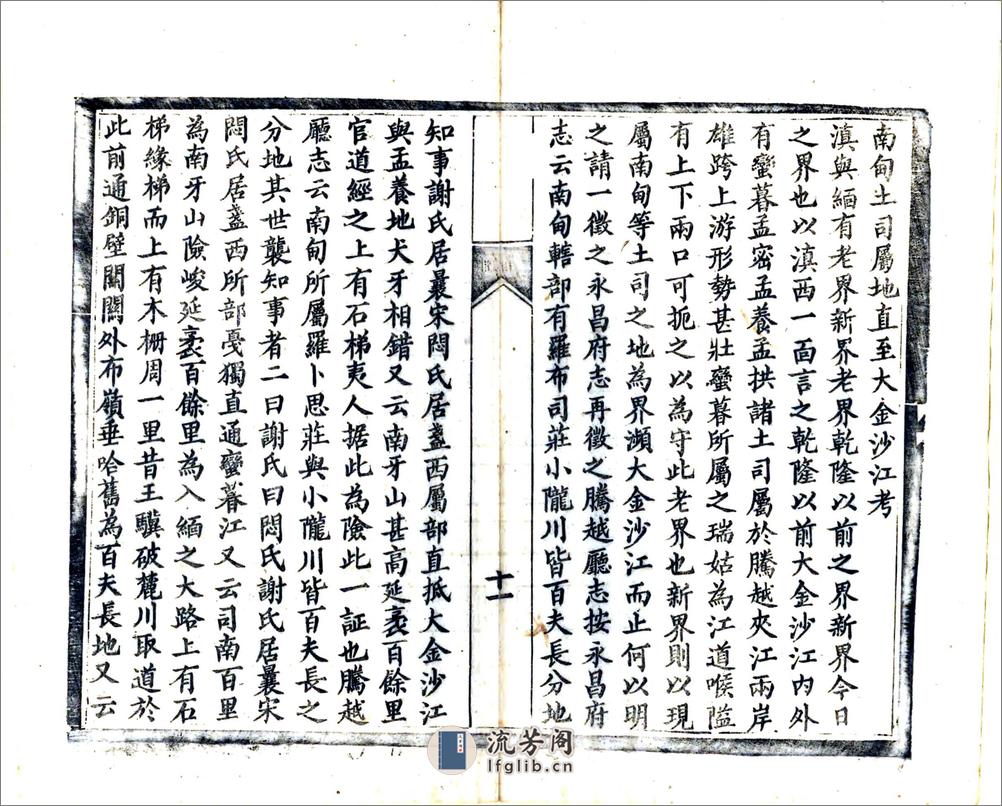 南甸土司屬地直至大金沙江考
滇與緬有老界新界老界乾隆以前之界新界今日
之界也以滇西一面言之乾隆以前大金沙江內外
有蠻暮孟密孟養孟拱諸土司屬於騰越夾江兩岸
雄跨上游形勢甚壯蠻暮所屬之瑞姑為江道喉隘
有上下兩口可扼之以為守此老界也新界則以現
屬南甸等土司之地為界瀕大金沙江而止何以明
之請一徵之永昌府志再徵之騰越廳志按永昌府
志云南甸轄部有羅布司莊小隴川皆百夫長分地
十一
知事謝氏居曩宋悶氏居盞西屬部直抵大金沙江
與孟養地犬牙相錯又云南牙山甚高延袤百餘里
官道經之上有石梯夷人据此為險此一証也騰越
廳志云南甸所屬羅卜思莊與小隴川皆百夫長之
分地其世襲知事者二曰謝氏曰悶氏謝氏居曩宋
悶氏居盞西所部戞獨直通蠻暮江又云司南百里
為南牙山險峻延袤百餘里為入緬之大路上有石
梯緣梯而上有木柵周一里昔王驥破麓川取道於
此前通銅壁關關外布嶺垂哈舊為百夫長地又云
流芳阁
lfglib.cn